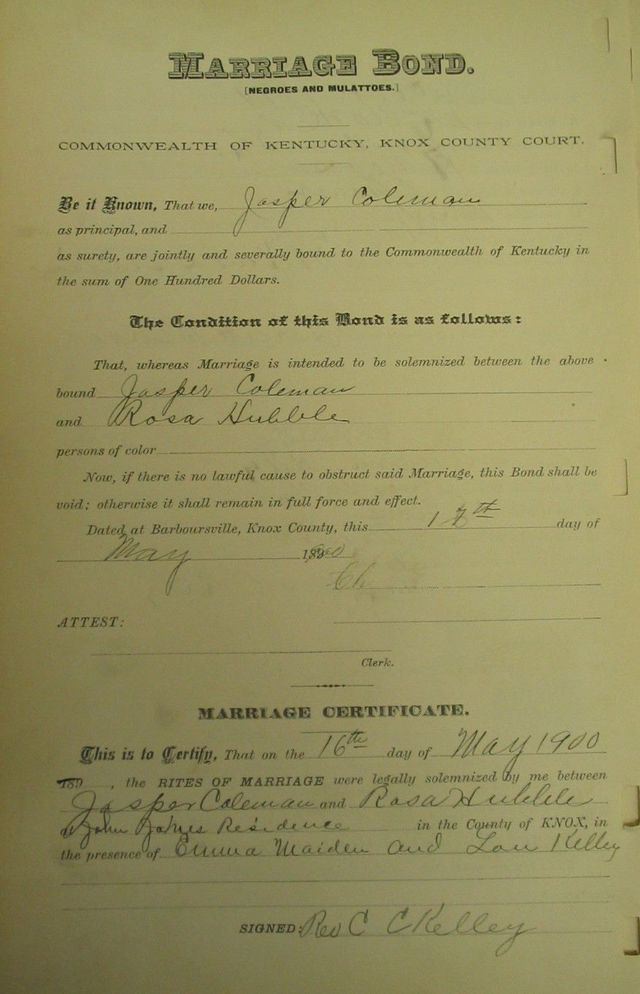 MARRIAGE BOND.
[NEGROES AND MULATTOES.]
COMMONWEALTH OF KENTUCKY, KNOX COUNTY COURT.
Be it Known, That we, Jasper Coleman
as principal, and
as surety, are jointly and severally bound to the Commonwealth of Kentucky in
the sum of One Hundred Dollars.
The Condition of this Bond is as follows:
That, whereas Marriage is intended to be solemnized between the above
bound Jasper Coleman
and Rosa Hubble
persons of color
Now, if there is no lawful cause to obstruct said Marriage, this Bond shall be
void; otherwise it shall remain in full force and effect.
Dated at Barboursville, Knox County, this day of
May 1900
ATTEST:
Clerk.
MARRIAGE CERTIFICATE.
This is to Certify, That on the 16th day of May 1900
189 , the RITES OF MARRIAGE were legally solemnized by me between
Jasper Coleman and Rosa Hubble
John Residence in the County of KNOX, in
the presence of Emma Maiden and Lou Kelley
SIGNED: Rev C C Kelley